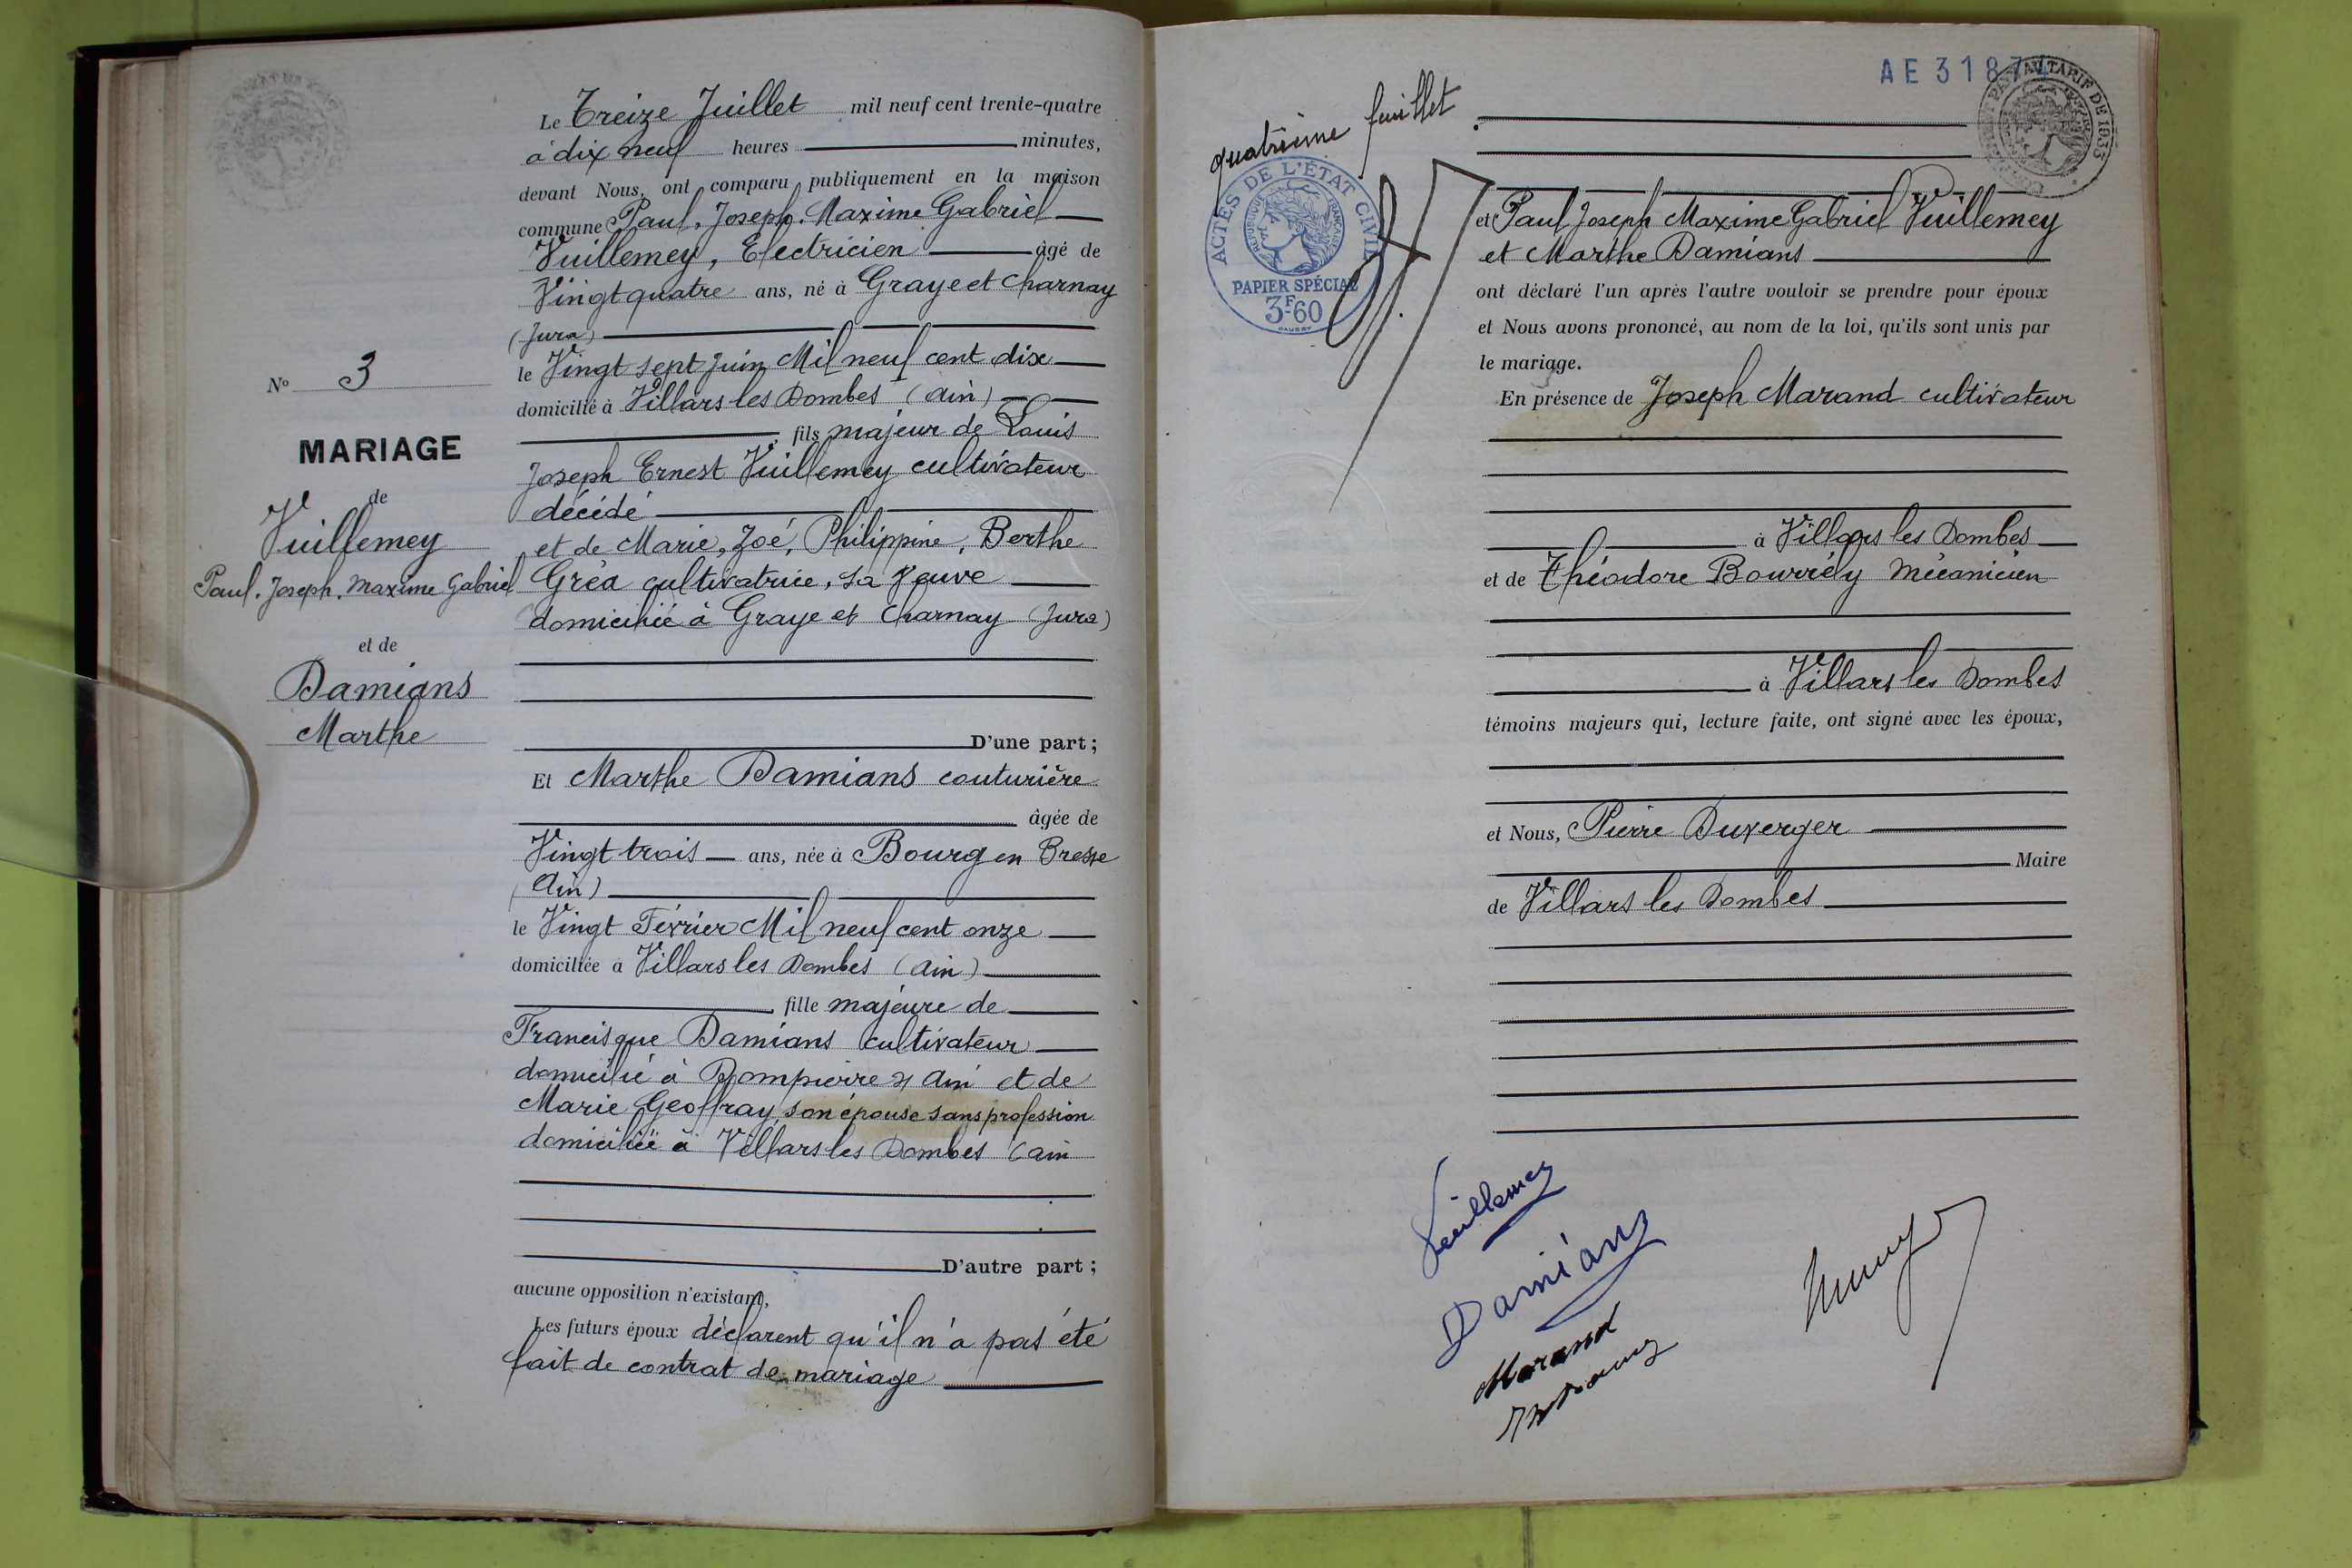 Le Treize Juillet mil neuf cent trente-quatre
à dix neuf heures minutes,
devant Nous, ont comparu publiquement en la maison
commune Paul, Joseph, Maxime Gabriel
Vuillemey, Electricien âgé de
Vingt quatre ans, né à Graye et Charnay
(Jura)
le Vingt sept Juin Mil neuf cent dix
domicilié à Villars les Dombes (Ain)
fils majeur de Louis
Joseph Ernest Vuillemey cultivateur
décédé
et de Marie, Zoé, Philippine, Berthe
Gréa cultivatrice, sa Veuve
domiciliée à Graye et Charnay (Jura)
D'une part ;
N° 3
MARIAGE
de
Vuillemey
Paul. Joseph. Maxime Gabriel
et de
Damians
Marthe
Et Marthe Damians couturière
âgée de
Vingt trois ans, née à Bourg en Bresse
(Ain)
le Vingt Février Mil neuf cent onze
domiciliée à Villars les Dombes (Ain)
fille majeure de
Francisque Damians cultivateur
domicilié à Dompierre s/ Ain et de
Marie Geoffray, son épouse sans profession
domiciliée à Villars les Dombes (Ain
D'autre part ;
aucune opposition n'existant,
Les futurs époux déclarent qu'il n'a pas été
fait de contrat de mariage
quatrième feuillet
ACTES DE L'ÉTAT CIVIL
RÉPUBLIQUE FRANÇAISE
PAPIER SPÉCIAL
3F60
AE 3187
TARIF DE 1933
et Paul Joseph Maxime Gabriel Vuillemey
et Marthe Damians
ont déclaré l'un après l'autre vouloir se prendre pour époux
et Nous avons prononcé, au nom de la loi, qu'ils sont unis par
le mariage.
En présence de Joseph Marand cultivateur
à Villars les Dombes
et de Théodore Bourréy Mécanicien
à Villars les Dombes
témoins majeurs qui, lecture faite, ont signé avec les époux,
et Nous, Pierre Duverger
Maire
de Villars les Dombes
Vuillemey
Damians
Marand